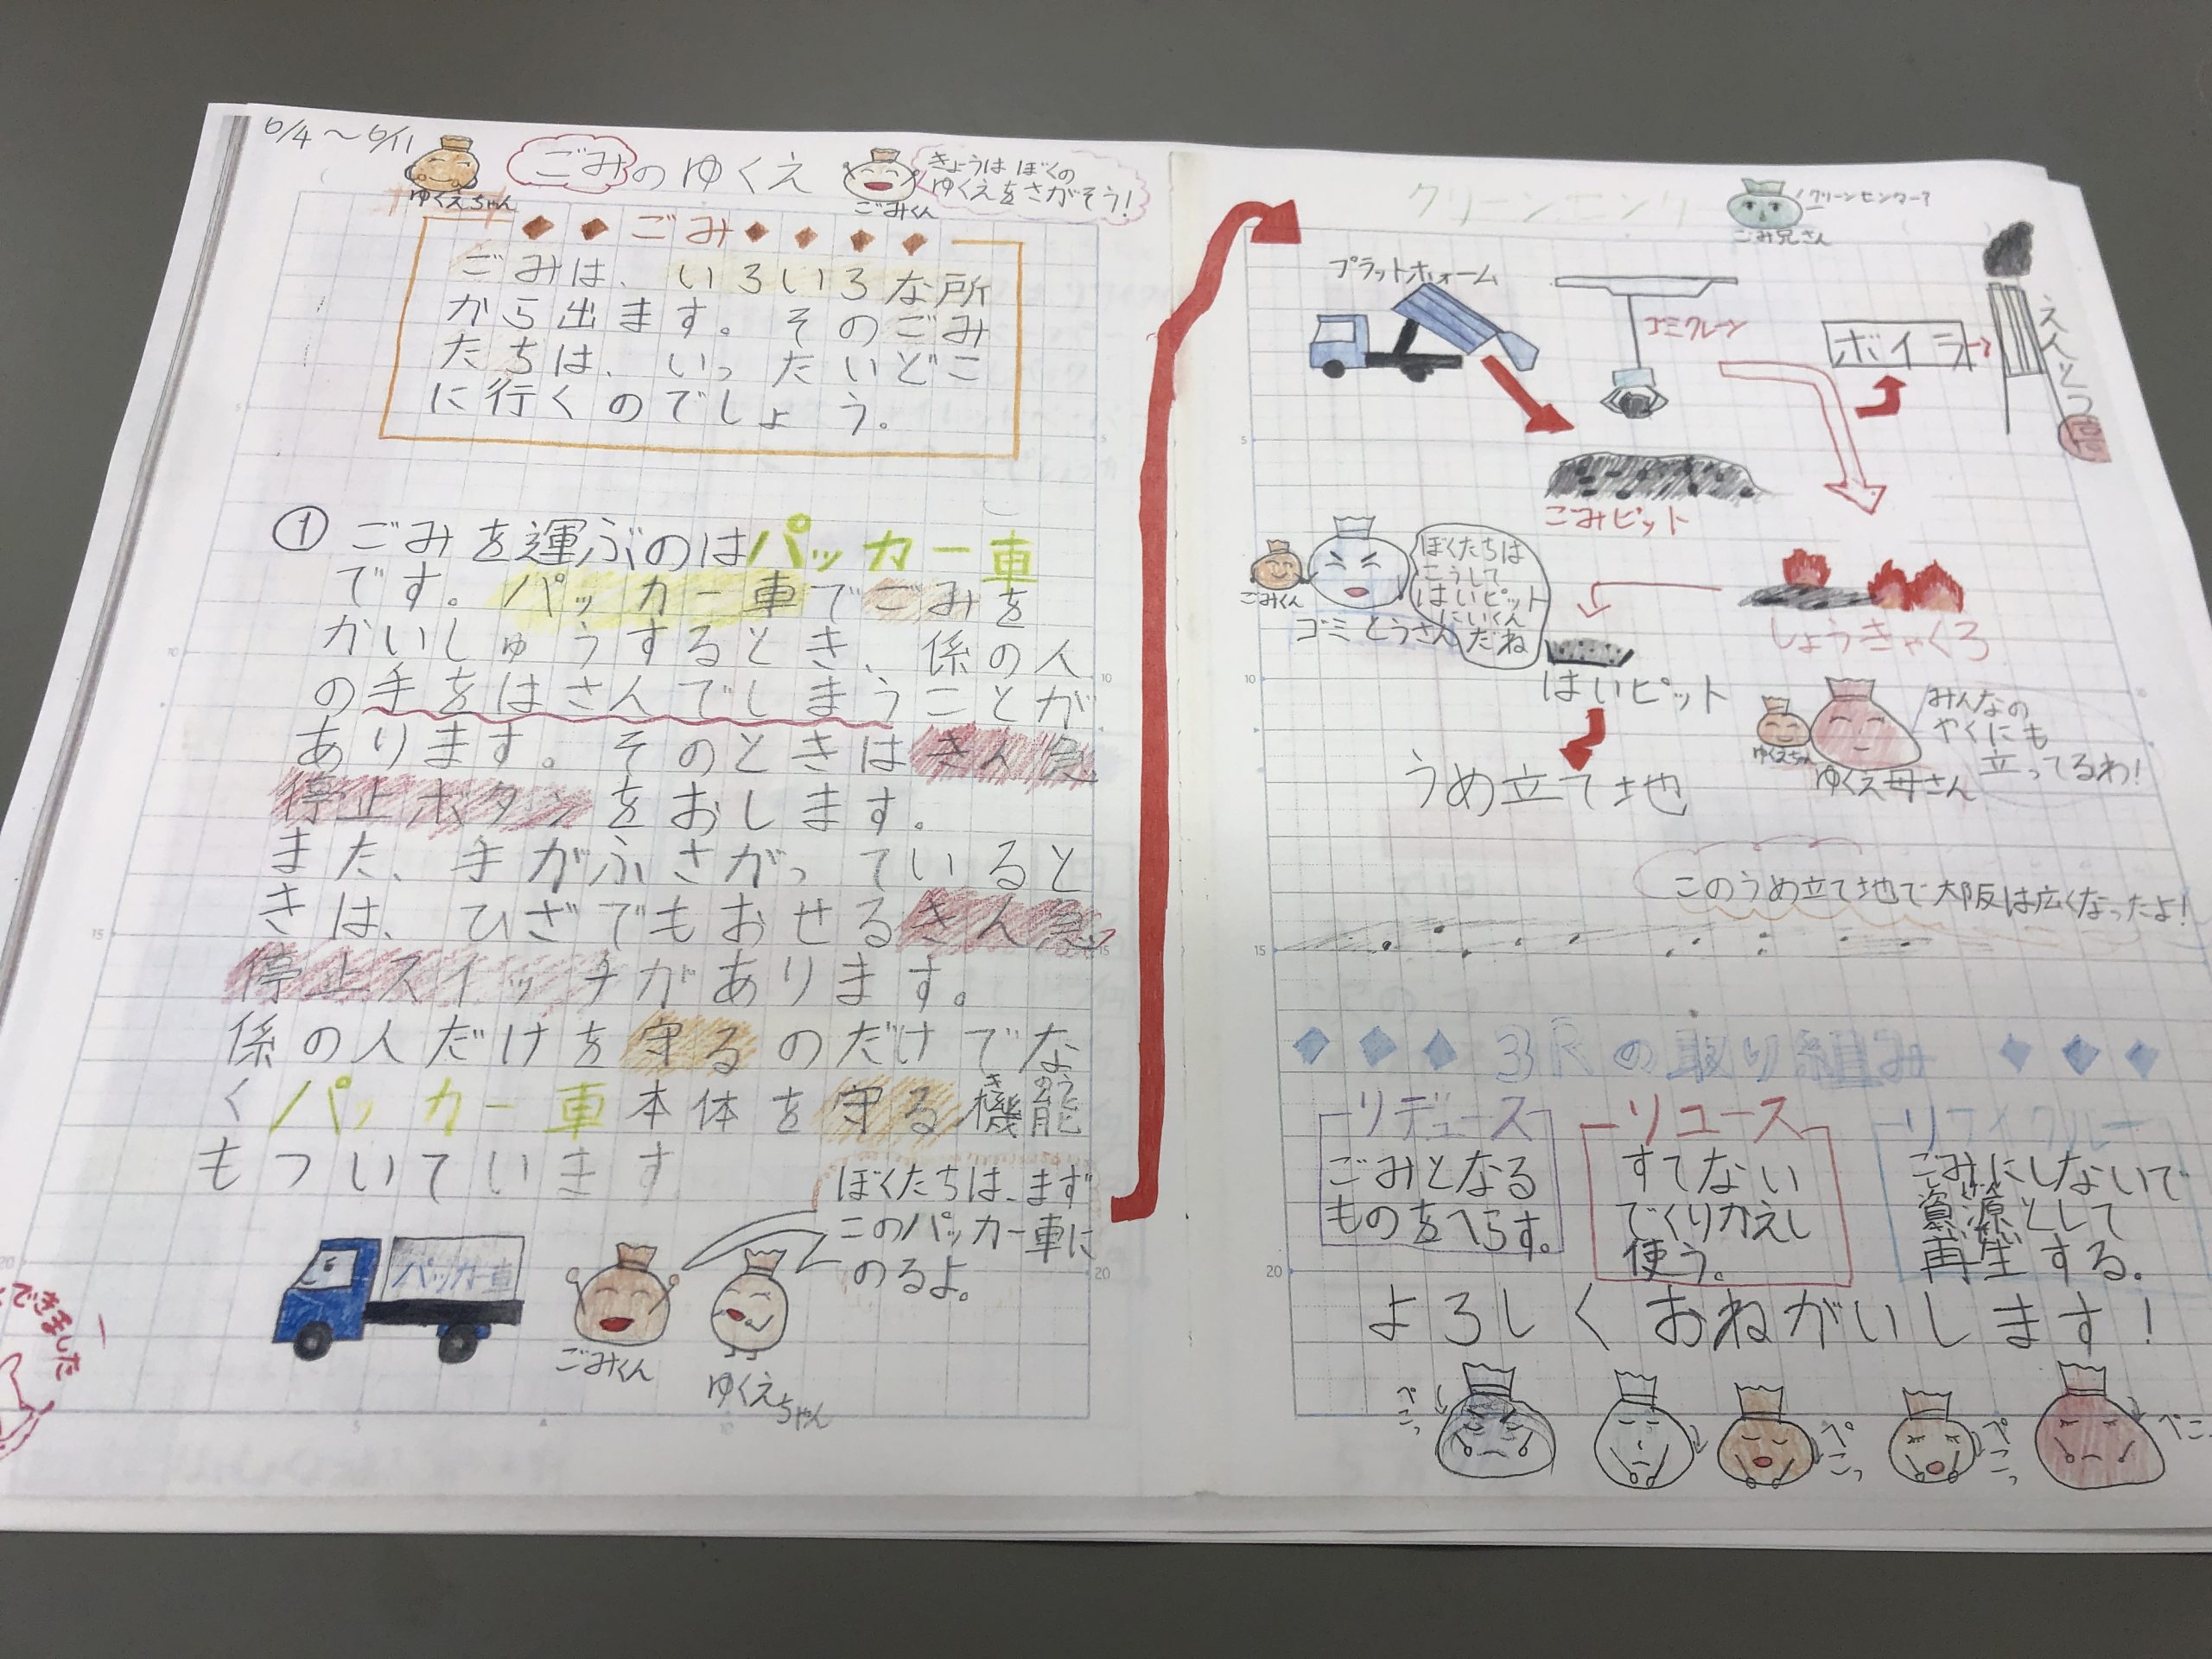 6/4〜6/11
ごみのゆくえ
ゆくえちゃん
ごみくん
きょうはぼくの
ゆくえをさがそう!
ごみ
ごみは、いろいろな所
から出ます。そのごみ
たちは、いったいどこ
に行くのでしょう。
①ごみを運ぶのはパッカー車
です。パッカー車でごみを
かいしゅうするとき、係の人
の手をはさんでしまうことが
あります。そのときはきん急
停止ボタンをおします。
また、手がふさがっていると
きは、ひざでもおせるきん急
停止スイッチがあります。
係の人だけを守るのだけでな
くパッカー車本体を守る機能
もついています
ぼくたちは、まず
このパッカー車に
のるよ。
パッカー車
ごみくん
ゆくえちゃん
できました
クリーンセンター
クリーンセンター?
ごみ兄さん
プラットホォーム
ゴミクレーン
ボイラー
えんとつ
ごみピット
ごみくん
ゴミとうさん
ぼくたちは
こうして
はいピット
にいくん
だね
しょうきゃくろ
はいピット
うめ立て地
ゆくえちゃん
ゆくえ母さん
みんなの
やくにも
立ってるわ!
このうめ立て地で大阪は広くなったよ!
3Rの取り組み
リデュース
ごみとなる
ものをへらす。
リユース
すてない
でくりかえし
使う。
リサイクル
ごみにしないで
資源として
再生する。
よろしくおねがいします!
ペこっ
ペこっ
ペこっ
ペこ